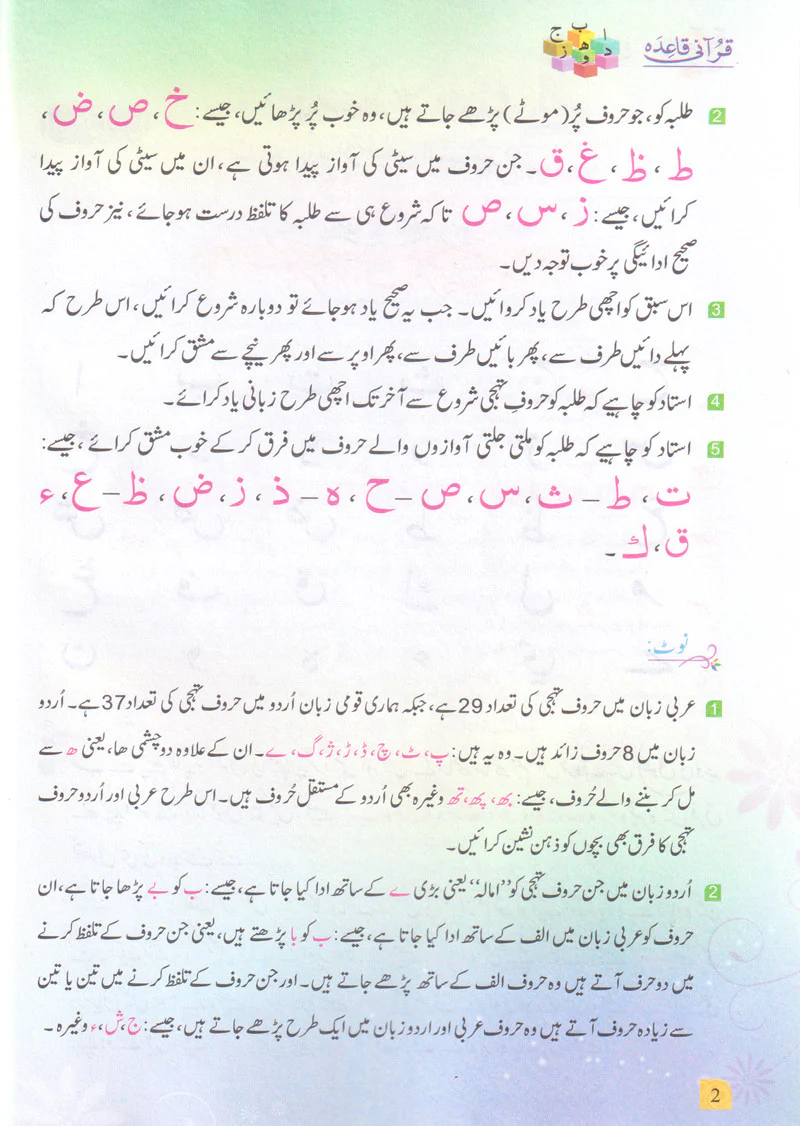 قرآنی قاعدہ
ا ب ج د ه و ز
2 طلبہ کو، جو حروف پُر (موٹے) پڑھے جاتے ہیں، وہ خوب پُر پڑھائیں، جیسے: خ، ص، ض،
ط، ظ، غ، ق۔ جن حروف میں سیٹی کی آواز پیدا ہوتی ہے، ان میں سیٹی کی آواز پیدا
کرائیں، جیسے: ز، س، ص تاکہ شروع ہی سے طلبہ کا تلفظ درست ہوجائے، نیز حروف کی
صحیح ادائیگی پر خوب توجہ دیں۔
3 اس سبق کو اچھی طرح یاد کروائیں۔ جب یہ صحیح یاد ہوجائے تو دوبارہ شروع کرائیں، اس طرح کہ
پہلے دائیں طرف سے، پھر بائیں طرف سے، پھر اوپر سے اور پھر نیچے سے مشق کرائیں۔
4 استاد کو چاہیے کہ طلبہ کو حروفِ تہجی شروع سے آخر تک اچھی طرح زبانی یاد کرائے۔
5 استاد کو چاہیے کہ طلبہ کو ملتی جلتی آوازوں والے حروف میں فرق کرکے خوب مشق کرائے، جیسے:
ت، ط – ث، س، ص – ح، ه – ذ، ز، ض، ظ – ع، ء
ق، ك ۔
نوٹ:
1 عربی زبان میں حروف تہجی کی تعداد 29 ہے، جبکہ ہماری قومی زبان اُردو میں حروف تہجی کی تعداد 37 ہے۔ اُردو
زبان میں 8 حروف زائد ہیں۔ وہ یہ ہیں: پ، ٹ، چ، ڈ، ڑ، ژ، گ، ے۔ ان کے علاوہ دوچشمی ھا، یعنی ھ سے
مل کر بننے والے حُروف، جیسے: بھ، پھ، تھ وغیرہ بھی اُردو کے مستقل حُروف ہیں۔ اس طرح عربی اور اُردو حروف
تہجی کا فرق بھی بچوں کو ذہن نشین کرائیں۔
2 اُردو زبان میں جن حروف تہجی کو ”امالہ“ یعنی بڑی ے کے ساتھ ادا کیا جاتا ہے، جیسے: ب کو بے پڑھا جاتا ہے، ان
حروف کو عربی زبان میں الف کے ساتھ ادا کیا جاتا ہے، جیسے: ب کو با پڑھتے ہیں، یعنی جن حروف کے تلفظ کرنے
میں دو حرف آتے ہیں وہ حروف الف کے ساتھ پڑھے جاتے ہیں۔ اور جن حروف کے تلفظ کرنے میں تین یا تین
سے زیادہ حروف آتے ہیں وہ حروف عربی اور اردو زبان میں ایک طرح پڑھے جاتے ہیں، جیسے: ج، ش، ء وغیرہ۔
2